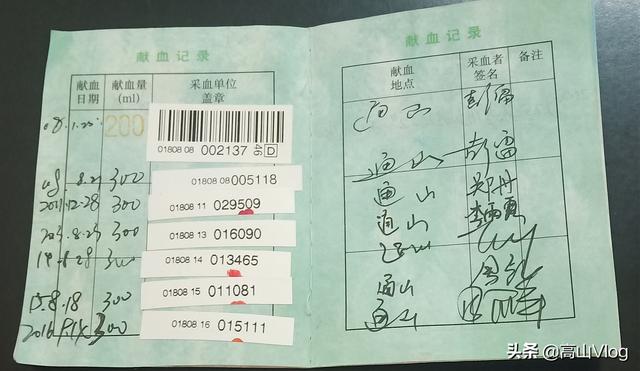 献血记录
献血日期 献血量(ml) 采血单位盖章
08.1.25 200 01808 08 002137 46 D
08.8.21 300 01808 08 005118
2011.12.28 300 01808 11 029509
2013.8.23 300 01808 13 016090
14.8.28 300 01808 14 013465
15.8.18 300 01808 15 011081
2016 300 01808 16 015111
献血记录
献血地点 采血者签名 备注
通山 彭雷
通山 彭雷
通山 郑丹
通山
通山
通山
通山
头条 @高山Vlog